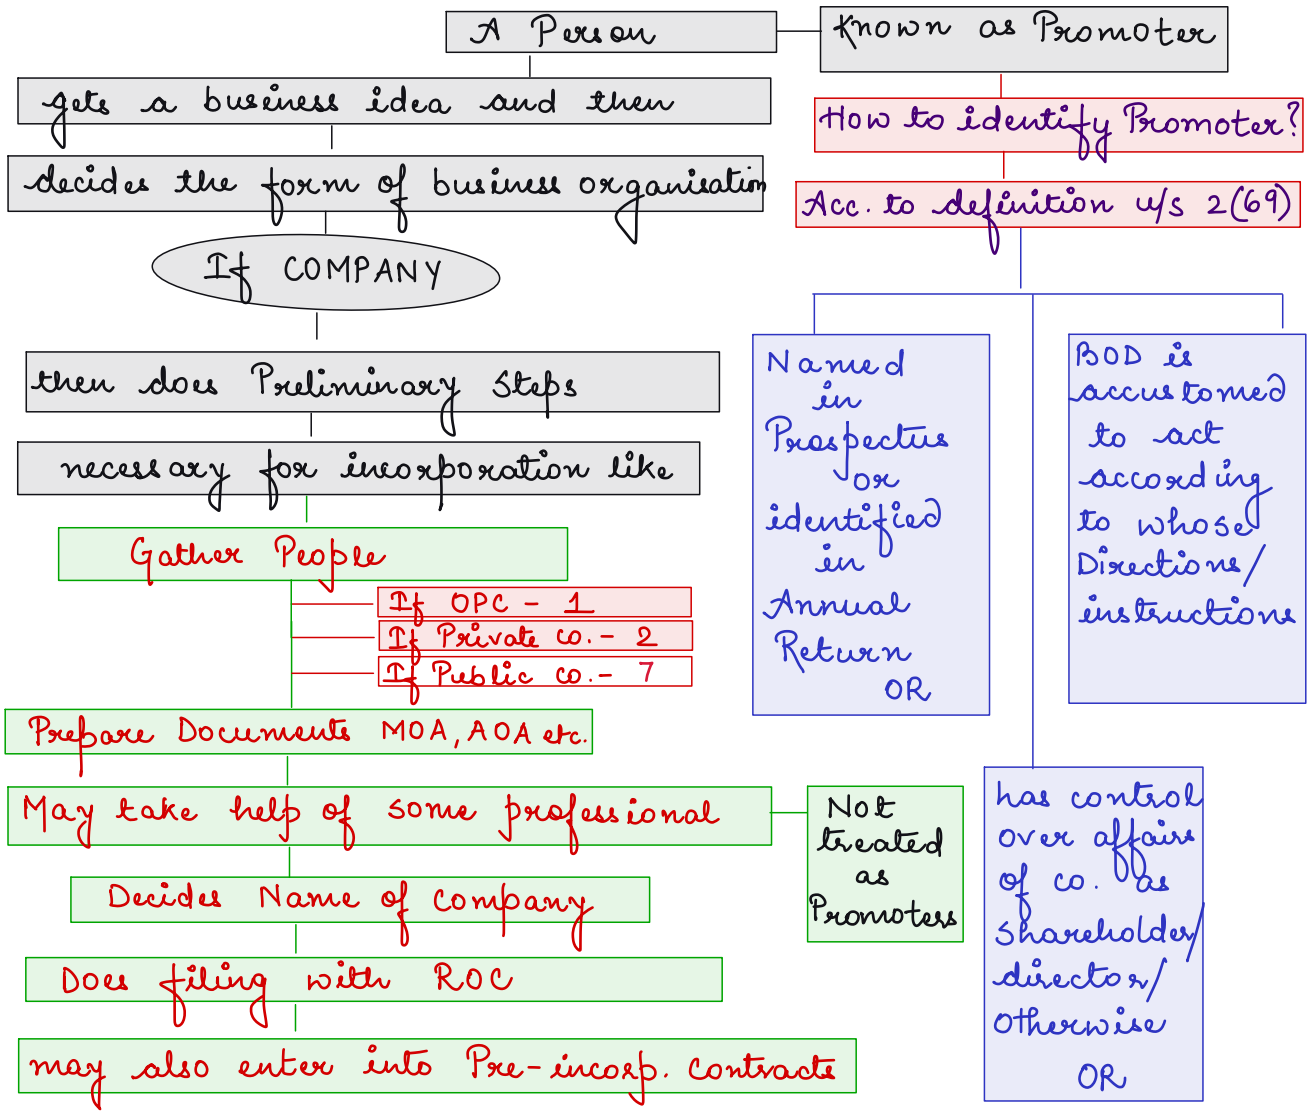 A Person
Known as Promoter
gets a business idea and then
decides the form of business organisation
If COMPANY
then does Preliminary Steps
necessary for incorporation like
Gather People
If OPC - 1
If Private co. - 2
If Public co. - 7
Prepare Documents MOA, AOA etc.
May take help of some professional
Not
treated
as
Promoters
Decides Name of company
Does filing with ROC
may also enter into Pre-incorp. contracts
How to identify Promoter?
Acc. to definition u/s 2(69)
Named
in
Prospectus
or
identified
in
Annual
Return
OR
has control
over affairs
of co. as
Shareholder/
director/
otherwise
OR
BOD is
accustomed
to act
according
to whose
Directions/
instructions